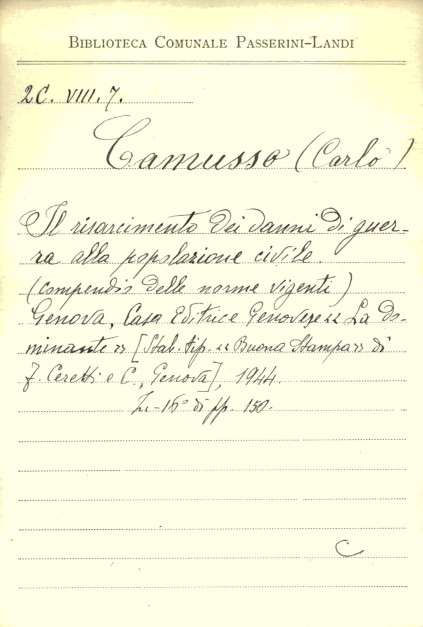 BIBLIOTECA COMUNALE PASSERINI-LANDI
2C. VIII. 7.
Camusso (Carlo)
Il risarcimento dei danni di guer-
ra alla popolazione civile.
(compendio delle norme vigenti)
Genova, Casa Editrice Genovese << La Do-
minante >> [Stab. tip. << Buona Stampa >> di
F. Ceretti e C., Genova], 1944.
In-16° di pp. 150.
C